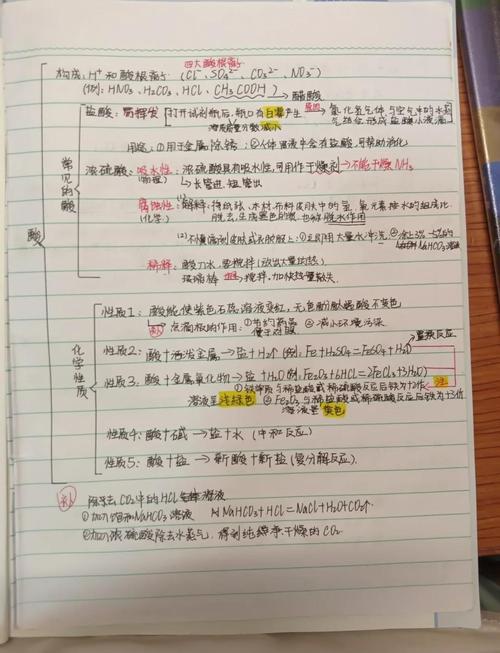 四大酸根离子
构成: H⁺和酸根离子 (Cl⁻、SO₄²⁻、CO₃²⁻、NO₃⁻)
(例: HNO₃、H₂CO₃、HCl、CH₃COOH) → 醋酸
酸
常见的酸
盐酸: 易挥发 [打开试剂瓶后,瓶口有白雾产生 原因 氯化氢气体与空气中的水蒸
溶质质量分数减小 气结合形成盐酸小液滴
用途: ①用于金属除锈; ②人体胃液中含有盐酸,可帮助消化
浓硫酸: 吸水性: 浓硫酸具有吸水性,可用作干燥剂 → 不能干燥NH₃
(物理) → 长管进,短管出
腐蚀性: (1)解释: 将纸张、木材、布料皮肤中的氢、氧元素按水的组成比
(化学) 脱去,生成黑色的炭,也称脱水作用
(2)不慎滴到皮肤或衣服上: ①立即用大量水冲洗 ②涂上
NaHCO₃溶液
稀释: 酸入水,要搅拌 (放出大量的热)
玻璃棒 搅拌,加快热量散失
化学性质
性质1: 酸能使紫色石蕊溶液变红,无色酚酞遇酸不变色
点滴板的作用: ①节约药品 ②减小环境污染
便于对照
性质2: 酸+活泼金属 → 盐+H₂↑ (例: Fe+H₂SO₄=FeSO₄+H₂↑) 置换反应
性质3: 酸+金属氧化物 → 盐+H₂O 例: Fe₂O₃+6HCl=2FeCl₃+3H₂O
注
①铁单质与稀盐酸或稀硫酸反应后铁为+2价
溶液呈浅绿色 ②Fe₂O₃与稀盐酸或稀硫酸反应后铁为+3价
溶液呈黄色
性质4: 酸+碱 → 盐+水 (中和反应)
性质5: 酸+盐 → 新酸+新盐 (复分解反应).
补 除去CO₂中的HCl 溶液
①加入饱和NaHCO₃溶液 NaHCO₃+HCl=NaCl+H₂O+CO₂↑.
②加入浓硫酸除去水蒸气,得到纯净干燥的CO₂